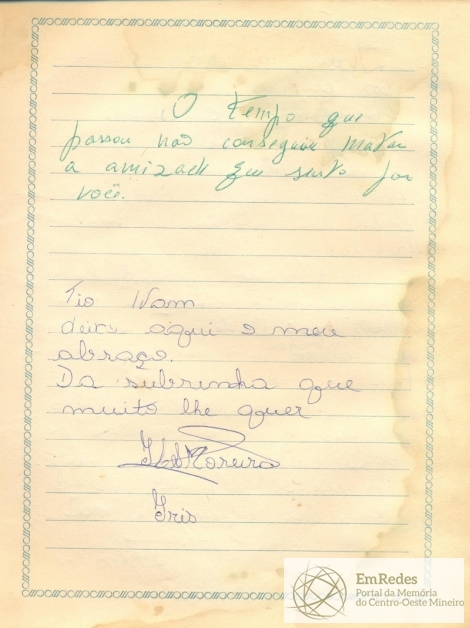 O tempo que
passou não conseguiu matar
a amizade que sinto por
você.
Tio Ivam
deixo aqui o meu
abraço.
Da subrinha que
muito lhe quer
Moreira
Iris
EmRedes
Portal da Memória
do Centro-Oeste Mineiro